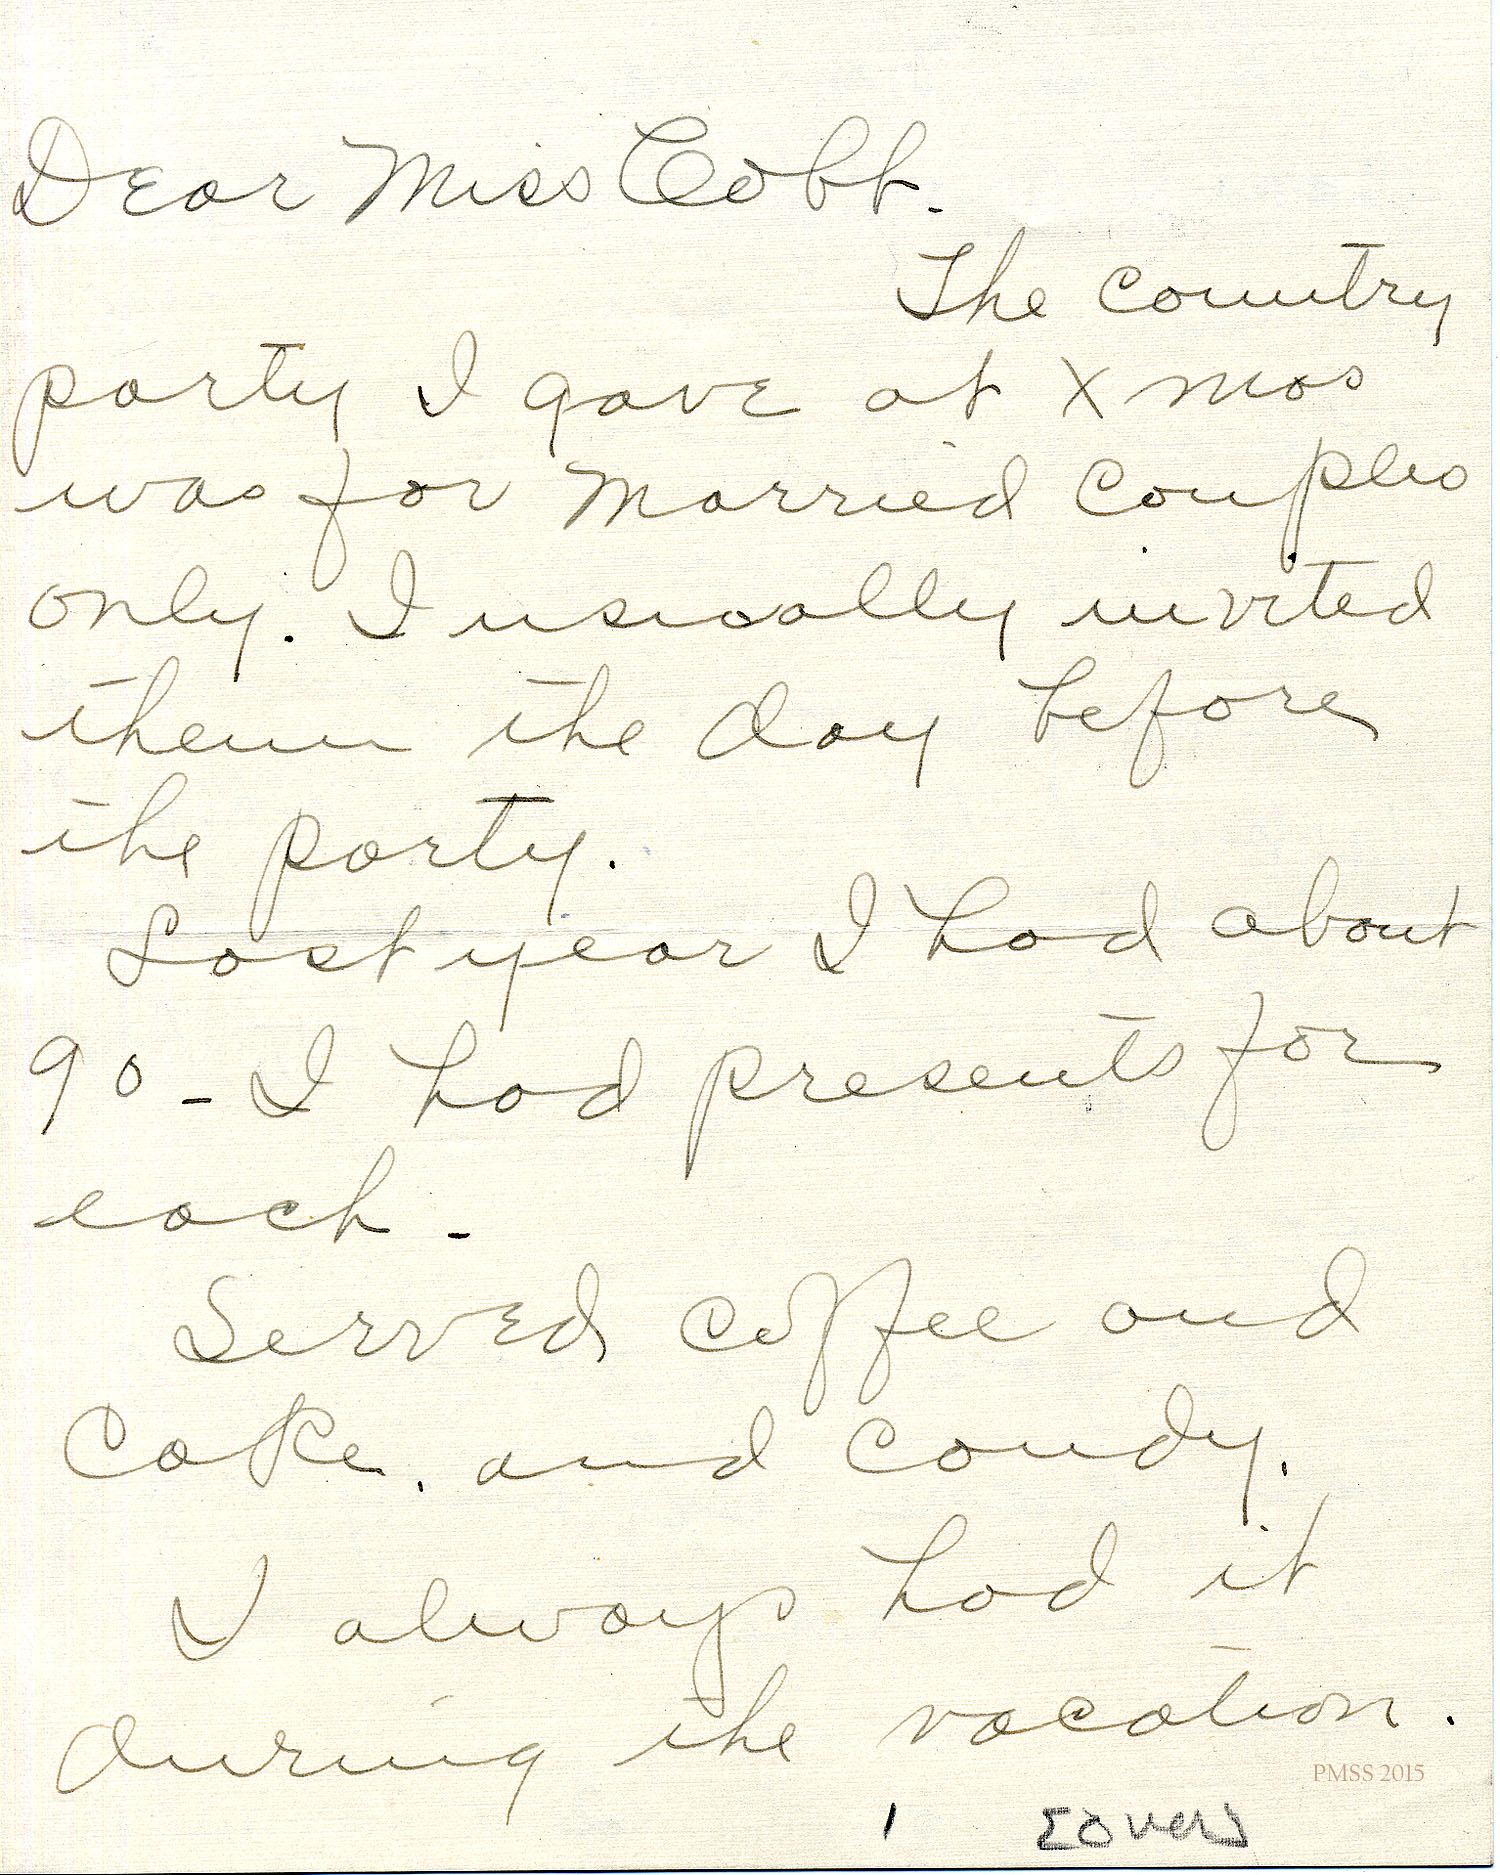 Dear Miss Cobb.
The country
party I gave at Xmas
was for Married Couples
only. I usually invited
them the day before
the party.
Last year I had about
90 - I had presents for
each -
Served coffee and
Cake, and candy.
I always had it
during the vacation.
PMSS 2015
1 [over]